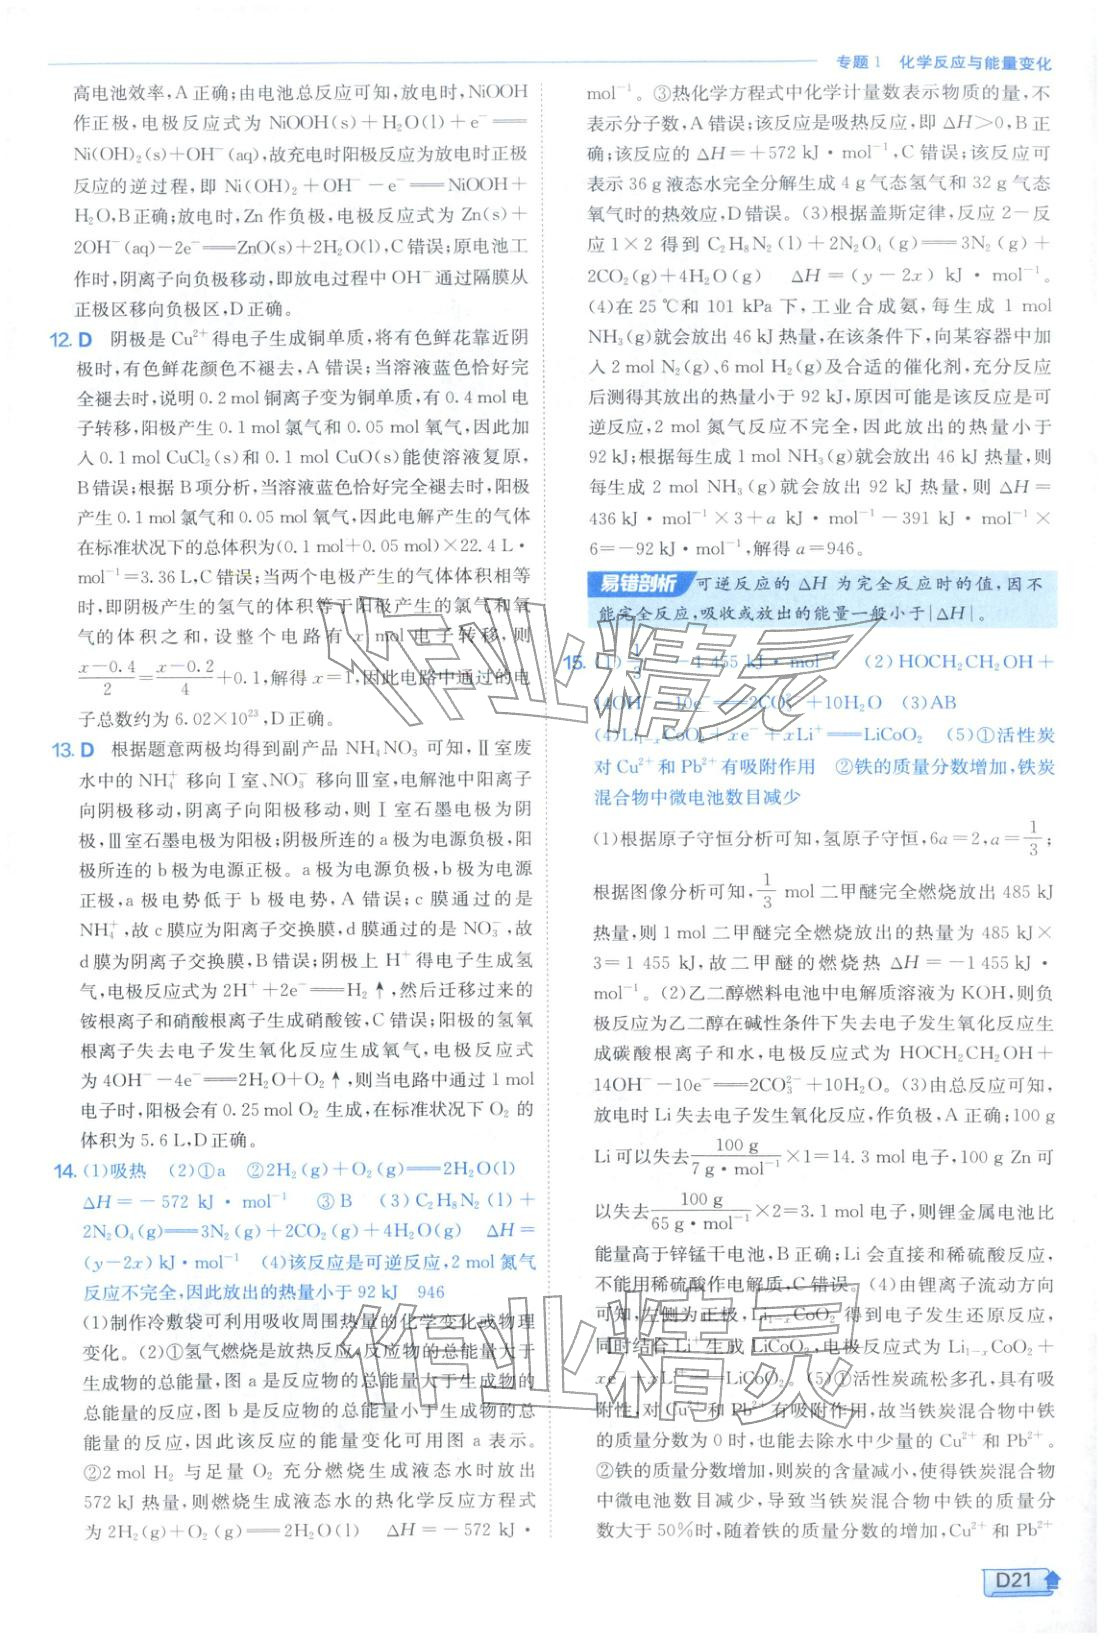 专题1 化学反应与能量变化
高电池效率,A正确;由电池总反应可知,放电时,NiOOH
作正极,电极反应式为 NiOOH(s)+H₂O(l)+e⁻══
Ni(OH)₂(s)+OH⁻(aq),故充电时阳极反应为放电时正极
反应的逆过程,即 Ni(OH)₂+OH⁻-e⁻══NiOOH+
H₂O,B正确;放电时,Zn作负极,电极反应式为 Zn(s)+
2OH⁻(aq)-2e⁻══ZnO(s)+2H₂O(l),C错误;原电池工
作时,阴离子向负极移动,即放电过程中OH⁻通过隔膜从
正极区移向负极区,D正确。
12. D 阴极是Cu²⁺得电子生成铜单质,将有色鲜花靠近阴
极时,有色鲜花颜色不褪去,A错误;当溶液蓝色恰好完
全褪去时,说明0.2 mol铜离子变为铜单质,有0.4 mol电
子转移,阳极产生0.1 mol氯气和0.05 mol氧气,因此加
入0.1 mol CuCl₂(s)和0.1 mol CuO(s)能使溶液复原,
B错误;根据B项分析,当溶液蓝色恰好完全褪去时,阳极
产生0.1 mol氯气和0.05 mol氧气,因此电解产生的气体
在标准状况下的总体积为(0.1 mol+0.05 mol)×22.4 L·
mol⁻¹=3.36 L,C错误;当两个电极产生的气体体积相等
时,即阴极产生的氢气的体积等于阳极产生的氯气和氧
气的体积之和,设整个电路有x mol电子转移,则
(x-0.4)/2=(x-0.2)/4+0.1,解得x=1,因此电路中通过的电
子总数约为6.02×10²³,D正确。
13. D 根据题意两极均得到副产品NH₄NO₃可知,Ⅱ室废
水中的NH₄⁺移向Ⅰ室、NO₃⁻移向Ⅲ室,电解池中阳离子
向阴极移动,阴离子向阳极移动,则Ⅰ室石墨电极为阴
极,Ⅲ室石墨电极为阳极;阴极所连的a极为电源负极,阳
极所连的b极为电源正极。a极为电源负极,b极为电源
正极,a极电势低于b极电势,A错误;c膜通过的是
NH₄⁺,故c膜应为阳离子交换膜,d膜通过的是NO₃⁻,故
d膜为阴离子交换膜,B错误;阴极上H⁺得电子生成氢
气,电极反应式为2H⁺+2e⁻══H₂↑,然后迁移过来的
铵根离子和硝酸根离子生成硝酸铵,C错误;阳极的氢氧
根离子失去电子发生氧化反应生成氧气,电极反应式
为4OH⁻-4e⁻══2H₂O+O₂↑,则当电路中通过1 mol
电子时,阳极会有0.25 mol O₂生成,在标准状况下O₂的
体积为5.6 L,D正确。
14. (1)吸热 (2)①a ②2H₂(g)+O₂(g)══2H₂O(l)
ΔH=-572 kJ·mol⁻¹ ③B (3)C₂H₈N₂(l)+
2N₂O₄(g)══3N₂(g)+2CO₂(g)+4H₂O(g) ΔH=
(y-2x)kJ·mol⁻¹ (4)该反应是可逆反应,2 mol氮气
反应不完全,因此放出的热量小于92 kJ 946
(1)制作冷敷袋可利用吸收周围热量的化学变化或物理
变化。(2)①氢气燃烧是放热反应,反应物的总能量大于
生成物的总能量,图a是反应物的总能量大于生成物的
总能量的反应,图b是反应物的总能量小于生成物的总
能量的反应,因此该反应的能量变化可用图a表示。
②2 mol H₂与足量O₂充分燃烧生成液态水时放出
572 kJ热量,则燃烧生成液态水的热化学反应方程式
为2H₂(g)+O₂(g)══2H₂O(l) ΔH=-572 kJ·
mol⁻¹。③热化学方程式中化学计量数表示物质的量,不
表示分子数,A错误;该反应是吸热反应,即ΔH>0,B正
确;该反应的ΔH=+572 kJ·mol⁻¹,C错误;该反应可
表示36 g液态水完全分解生成4 g气态氢气和32 g气态
氧气时的热效应,D错误。(3)根据盖斯定律,反应2-反
应1×2得到C₂H₈N₂(l)+2N₂O₄(g)══3N₂(g)+
2CO₂(g)+4H₂O(g) ΔH=(y-2x) kJ·mol⁻¹。
(4)在25℃和101 kPa下,工业合成氨,每生成1 mol
NH₃(g)就会放出46 kJ热量,在该条件下,向某容器中加
入2 mol N₂(g)、6 mol H₂(g)及合适的催化剂,充分反应
后测得其放出的热量小于92 kJ,原因可能是该反应是可
逆反应,2 mol氮气反应不完全,因此放出的热量小于
92 kJ;根据每生成1 mol NH₃(g)就会放出46 kJ热量,则
每生成2 mol NH₃(g)就会放出92 kJ热量,则ΔH=
436 kJ·mol⁻¹×3+a kJ·mol⁻¹-391 kJ·mol⁻¹×
6=-92 kJ·mol⁻¹,解得a=946。
易错剖析 可逆反应的ΔH为完全反应时的值,因不
能完全反应,吸收或放出的能量一般小于|ΔH|。
15. (1)1/3 -1 455 kJ·mol⁻¹ (2)HOCH₂CH₂OH+
14OH⁻-10e⁻══2CO₃²⁻+10H₂O (3)AB
(4)Li₁₋ₓCoO₂+xe⁻+xLi⁺══LiCoO₂ (5)①活性炭
对Cu²⁺和Pb²⁺有吸附作用 ②铁的质量分数增加,铁炭
混合物中微电池数目减少
(1)根据原子守恒分析可知,氢原子守恒,6a=2,a=1/3;
根据图像分析可知,1/3 mol二甲醚完全燃烧放出485 kJ
热量,则1 mol二甲醚完全燃烧放出的热量为485 kJ×
3=1 455 kJ,故二甲醚的燃烧热ΔH=-1 455 kJ·
mol⁻¹。(2)乙二醇燃料电池中电解质溶液为KOH,则负
极反应为乙二醇在碱性条件下失去电子发生氧化反应生
成碳酸根离子和水,电极反应式为HOCH₂CH₂OH+
14OH⁻-10e⁻══2CO₃²⁻+10H₂O。(3)由总反应可知,
放电时Li失去电子发生氧化反应,作负极,A正确;100 g
Li可以失去100 g/(7 g·mol⁻¹)×1=14.3 mol电子,100 g Zn可
以失去100 g/(65 g·mol⁻¹)×2=3.1 mol电子,则锂金属电池比
能量高于锌锰干电池,B正确;Li会直接和稀硫酸反应,
不能用稀硫酸作电解质,C错误。(4)由锂离子流动方向
可知,左侧为正极,Li₁₋ₓCoO₂得到电子发生还原反应,
同时结合Li⁺生成LiCoO₂,电极反应式为Li₁₋ₓCoO₂+
xe⁻+xLi⁺══LiCoO₂。(5)①活性炭疏松多孔,具有吸
附性,对Cu²⁺和Pb²⁺有吸附作用,故当铁炭混合物中铁
的质量分数为0时,也能去除水中少量的Cu²⁺和Pb²⁺。
②铁的质量分数增加,则炭的含量减小,使得铁炭混合物
中微电池数目减少,导致当铁炭混合物中铁的质量分
数大于50%时,随着铁的质量分数的增加,Cu²⁺和Pb²⁺
D21
作业精灵
作业精灵